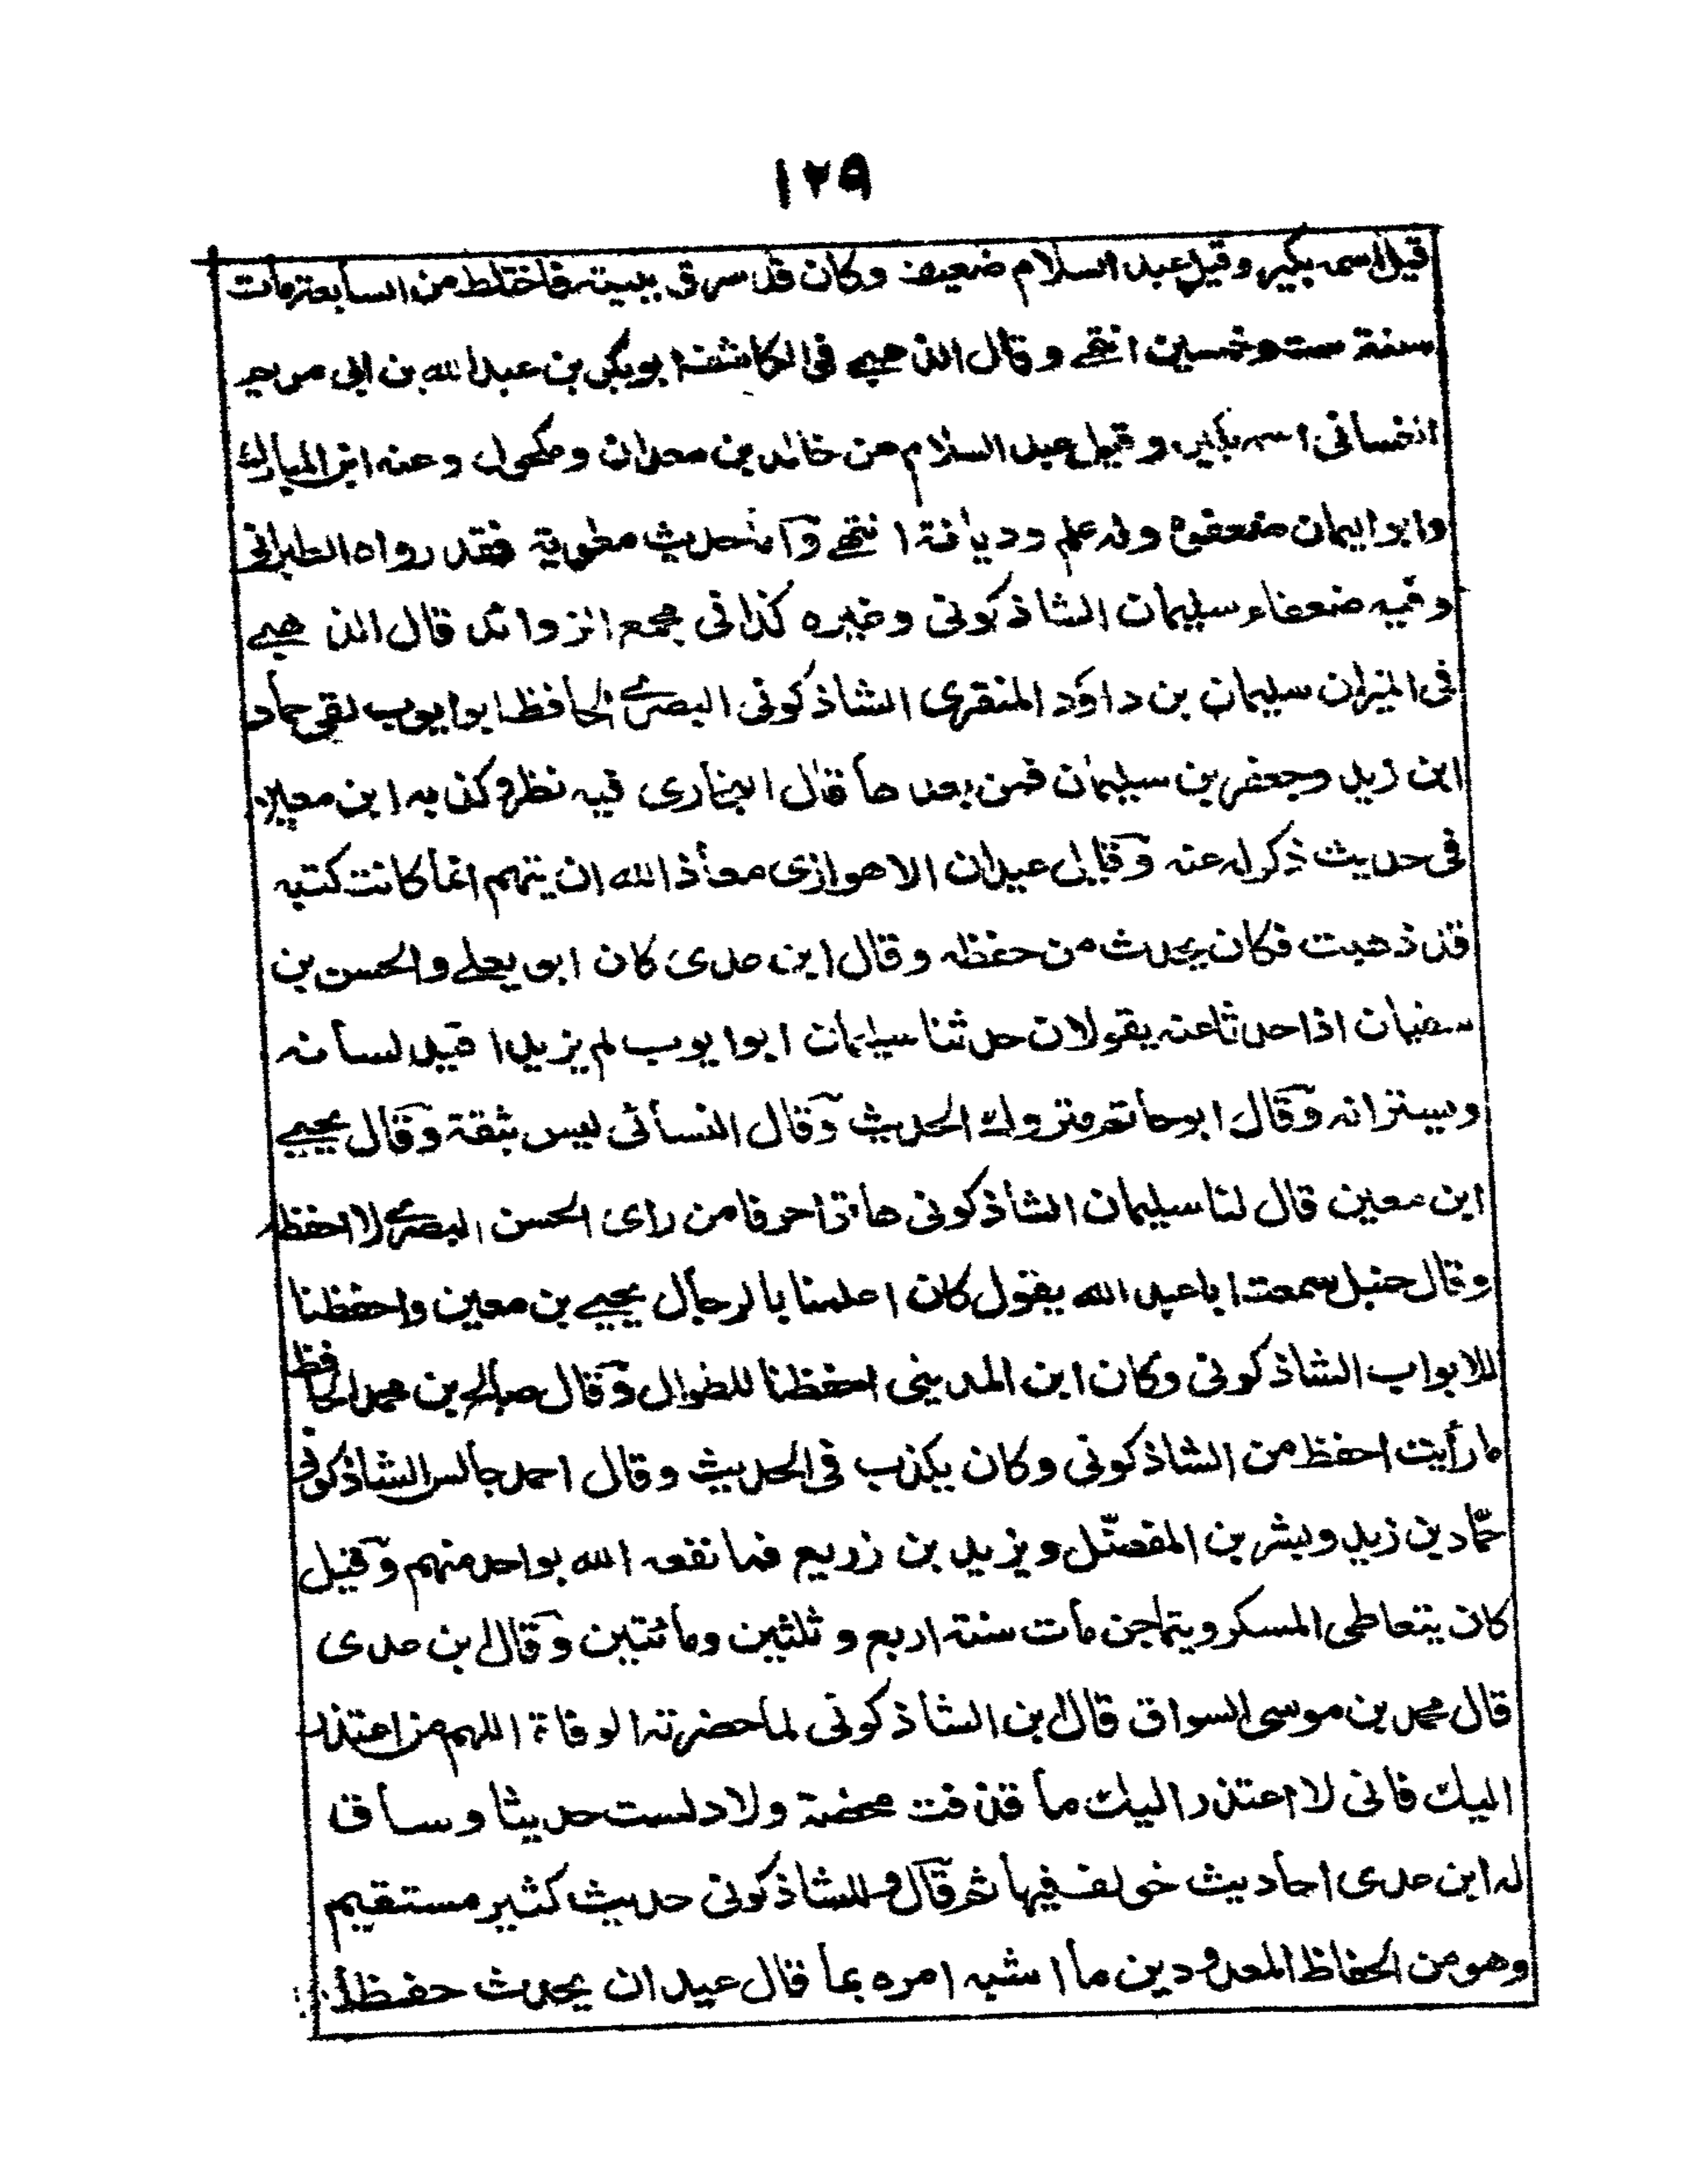 ١٢٩
قيل اسمه بكير وقيل عبد السلام ضعيف وكان قد سرق بيته فاختلط من السابعة مات
سنة ست وخمسين انتهى وقال الذهبي في الكاشف ابو بكر بن عبد الله بن ابي مريم
الغساني اسمه بكير وقيل عبد السلام عن خالد بن معدان ومكحول وعنه ابن المبارك
وابو اليمان ضعفوه وله علم وديانة انتهى وآما حديث معوية فقد رواه الطبراني
وفيه ضعفاء سليمان الشاذكوني وغيره كذا في مجمع الزوائد قال الذهبي
في الميزان سليمان بن داود المنقري الشاذكوني البصري الحافظ ابو ايوب لقي حماد
ابن زيد وجعفر بن سليمان فمن بعدهما قال البخاري فيه نظر وكذبه ابن معين
في حديث ذكر له عنه وقال عبدان الاهوازي معاذ الله ان يتهم انما كانت كتبه
قد ذهبت فكان يحدث من حفظه وقال ابن عدي كان ابو يعلى والحسن بن
سفيان اذا حدثا عنه يقولان حدثنا سليمان ابو ايوب لم يزيدا قيد لسانه
ويسترانه وقال ابو حاتم متروك الحديث وقال النسائي ليس بثقة وقال يحيى
ابن معين قال لنا سليمان الشاذكوني هاتوا حرفا من راى الحسن البصري لا احفظه
وقال حنبل سمعت ابا عبد الله يقول كان اعلمنا بالرجال يحيى بن معين واحفظنا
للابواب الشاذكوني وكان ابن المديني احفظنا للطوال وقال صالح بن محمد الحافظ
ما رأيت احفظ من الشاذكوني وكان يكذب في الحديث وقال احمد جالس الشاذكوني
حمّاد بن زيد وبشر بن المفضّل ويزيد بن زريع فما نفعه الله بواحد منهم وقيل
كان يتعاطى المسكر ويتماجن مات سنة اربع وثلثين ومائتين وقال ابن عدي
قال محمد بن موسى السواق قال ابن الشاذكوني لما حضرته الوفاة اللهم من اعتذر
اليك فاني لا اعتذر اليك ما قذفت محصنة ولا دلست حديثا وساق
له ابن عدي احاديث خولف فيها ثم قال وللشاذكوني حديث كثير مستقيم
وهو من الحفاظ المعدودين ما اشبه امره بما قال عبدان يحدث حفظا